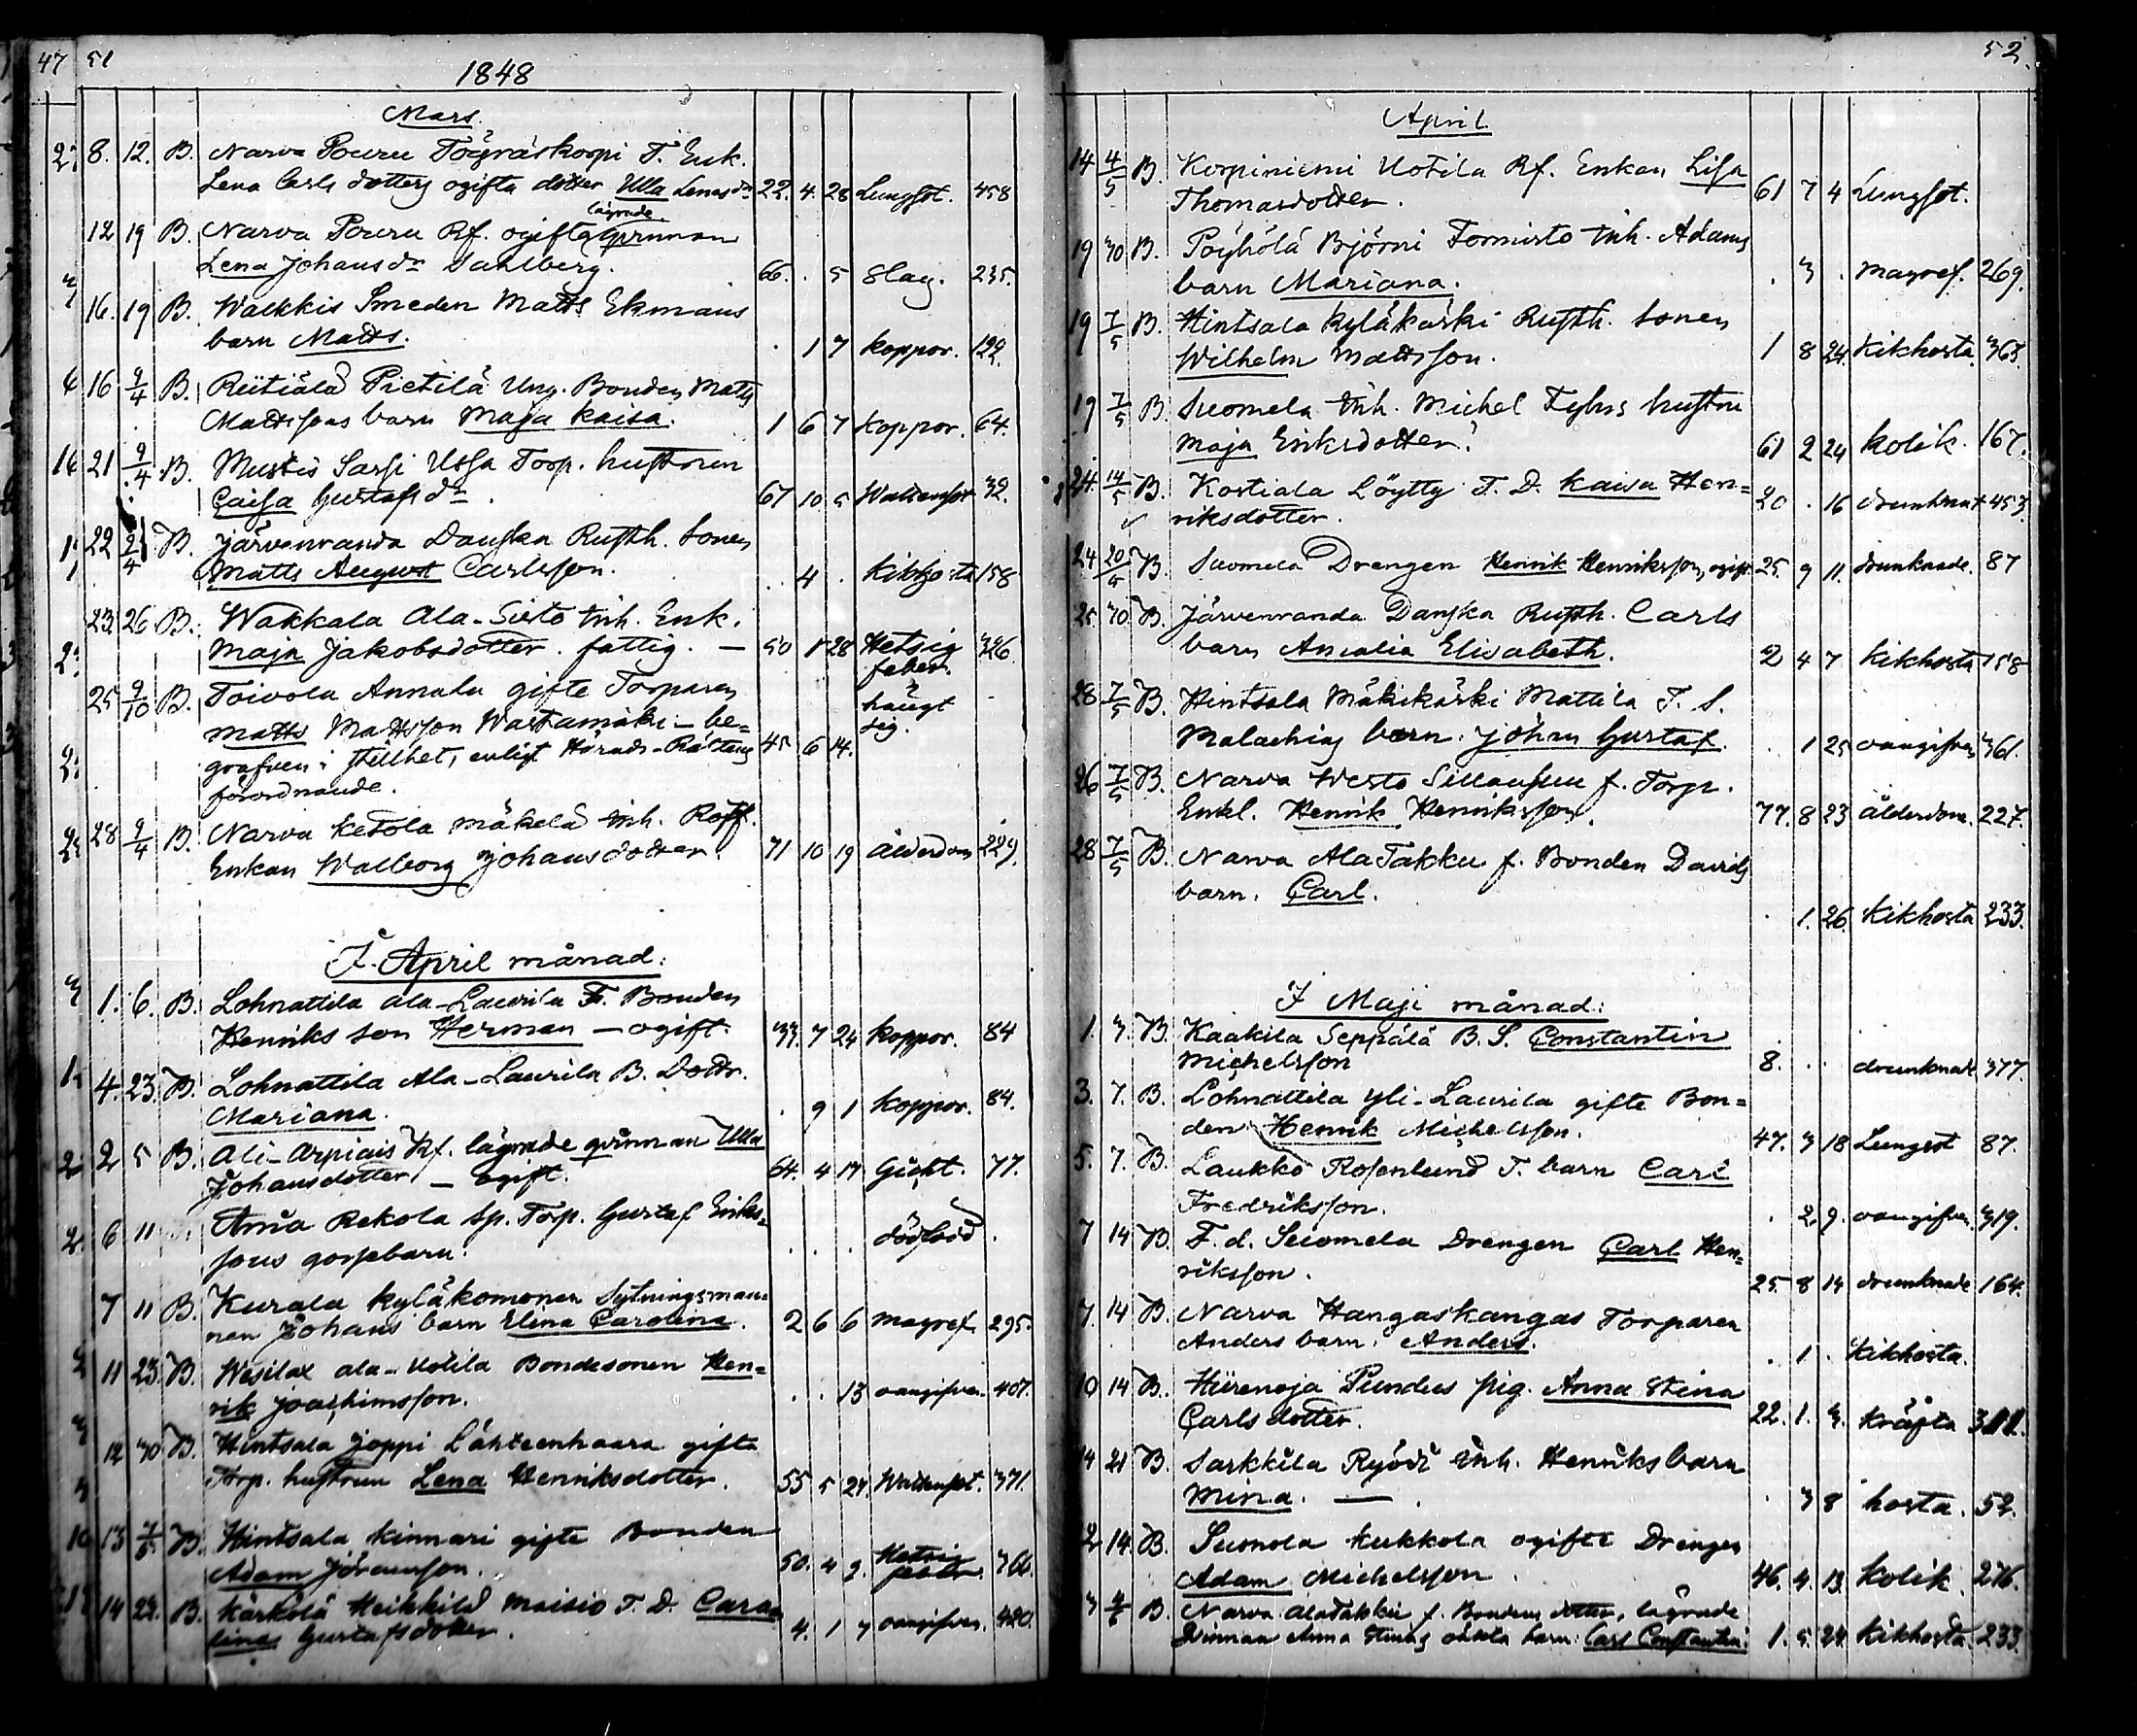 47 51
1848
Mars.
8. 12. B. Narva Pouru Töyräskorpi T. Enk.
Lena Carls dotters ogifta dotter Ulla Lenasdr 22. 4. 28 Lungsot. 458
lägrade
12 19 B. Narva Pouru Rf. ogifta qvinnan
Lena Johansdr Dahlberg. 66. . 5 Slag. 235.
16. 19 B. Walkkis Smeden Matts Ekmans
barn Matts. . 1 7 koppor. 122.
16 9/4 B. Riitiälä Pietilä Ung. Bonden Matts
Mattssons barn Maja Kaisa. 1 6 7 Koppor. 64.
21 9/4 B. Mustis Sarsi Ussa Torp. hustrun
Caisa Gustafsdr. 67 10 5 Wattensot 32.
22 24/4 B. Järvenranda Danska Rusth. Sonen
Matts August Carlsson. . 4 . Kikhosta 158
23. 26 B. Wakkala Ala-Sisto inh. Enk.
Maja Jakobsdotter. fattig. — 50 1 28 Hetsig 326
feber.
25 9/10 B. Toivola Annala gifte Torparen
Matts Mattsson Wastamäki — be= hängt
grafven i stillhet, enligt Härads-Rättens 45 6 14. sig.
förordnande.
28 9/4 B. Narva Ketola Mäkelä inh. Rotf.
Enkan Walborg Johansdotter. 71 10 19 Ålderdom 229.
I April månad:
1. 6. B. Lohnattila Ala-Laurila F. Bonden
Henriks son Herman — ogift. 33. 7 24 koppor. 84
4. 23. B. Lohnattila Ala-Laurila B. Dottr.
Mariana. . 9 1 koppor. 84.
2 5 B. Ali-Arpiais Rf. lägrade qvinnan Ulla
Johansdotter — ogift. 64. 4 17 Gicht. 77.
6 11 Ania Rekola Sp. Torp. Gustaf Eriks=
sons gossebarn. . . . dödfödd .
7 11 B. Kurala Kyläkomonen Sytningsman=
nen Johans barn Elina Carolina. 2 6 6 magref. 295.
11 23. B. Wesilax Ala-Uotila Bondesonen Hen=
rik Joachimsson. . . 13 oangifven. 407.
12 30 B. Hintsala Joppi Lähteenhaara gifta
Torp. hustrun Lena Henriksdotter. 55 5 27. Wattensot. 371.
13 7/5. B. Hintsala Kinnari gifte Bonden
Adam Jöransson. 50. 4 2. Hetsig feber. 366.
14 24. B. Kärkölä Heikkilä Maisio T. D. Caro=
lina Gustafsdotter. 4. 1 7 oangifven. 420.
52.
April.
14 4/5 B. Korpiniemi Uotila Rf. Enkan Lisa
Thomasdotter. 61 7 4 Lungsot.
19 30 B. Pöyhölä Björni Tomisto inh. Adams
barn Mariana. . 3 . magref. 269.
19 7/5 B. Hintsala Kyläkärki Rusth. Sonen
Wilhelm Mattsson. 1 8 24. Kikhosta. 363.
19 7/5 B. Suomela inh. Michel hustru
Maja Eriksdotter. 61 2 24 Kolik. 167.
24. 14/5 B. Kostiala Löytty T. D. Kaisa Hen=
riksdotter. 20 . 16 drunknat 453.
24 20/5 B. Suomela Drengen Henrik Henriksson, ogift. 25. 9 11. drunknade. 87
25. 30 B. Järvenranda Danska Rusth. Carls
barn Amalia Elisabeth. 2 4 7 Kikhosta 158
28 7/5 B. Hintsala Mäkikärki Mattila T. S.
Malachias barn. Johan Gustaf. . 1 25 oangifven 361.
26 7/5 B. Narva Westo Sillansuu f. Torp.
Enkl. Henrik Henriksson. 77. 8 23 ålderdom. 227.
28 7/5 B. Narva Ala Takku f. Bonden Davids
barn. Carl. . 1. 26. Kikhosta 233.
I Maji månad:
1. 7. B. Kaakila Seppälä B. S. Constantin
Michelsson 8. . . drunknat 377.
3. 7. B. Lohnattila Yli-Laurila gifte Bon=
den Henrik Michelsson. 47. 3 18 Lungsot 87.
5. 7. B. Laukko Rosenlund T. barn Carl
Fredriksson. . 2. 9. oangifven. 319.
7 14 B. F. d. Suomela Drengen Carl Hen=
riksson. 25. 8 14 drunknade 164.
7. 14 B. Narva Hangaskangas Torparen
Anders barn. Anders. . 1 . Kikhosta.
10 14 B. Hiirenoja Pundus pig. Anna Stina
Carlsdotter. 22. 1. 3. kräfta 311.
14 21 B. Sarkkila Ryödi inh. Henriks barn
Mina. — . . 3 8 hosta. 52.
2 14. B. Suonola Kukkola ogifte Drengen
Adam Michelsson. 46. 4. 13. Kolik 276.
B. Narva Alatakku f. Bondens dotter, lägrade
Qvinnan Anna Stinas oäkta barn: Carl Constantin. 1. 5. 24. Kikhosta. 233.